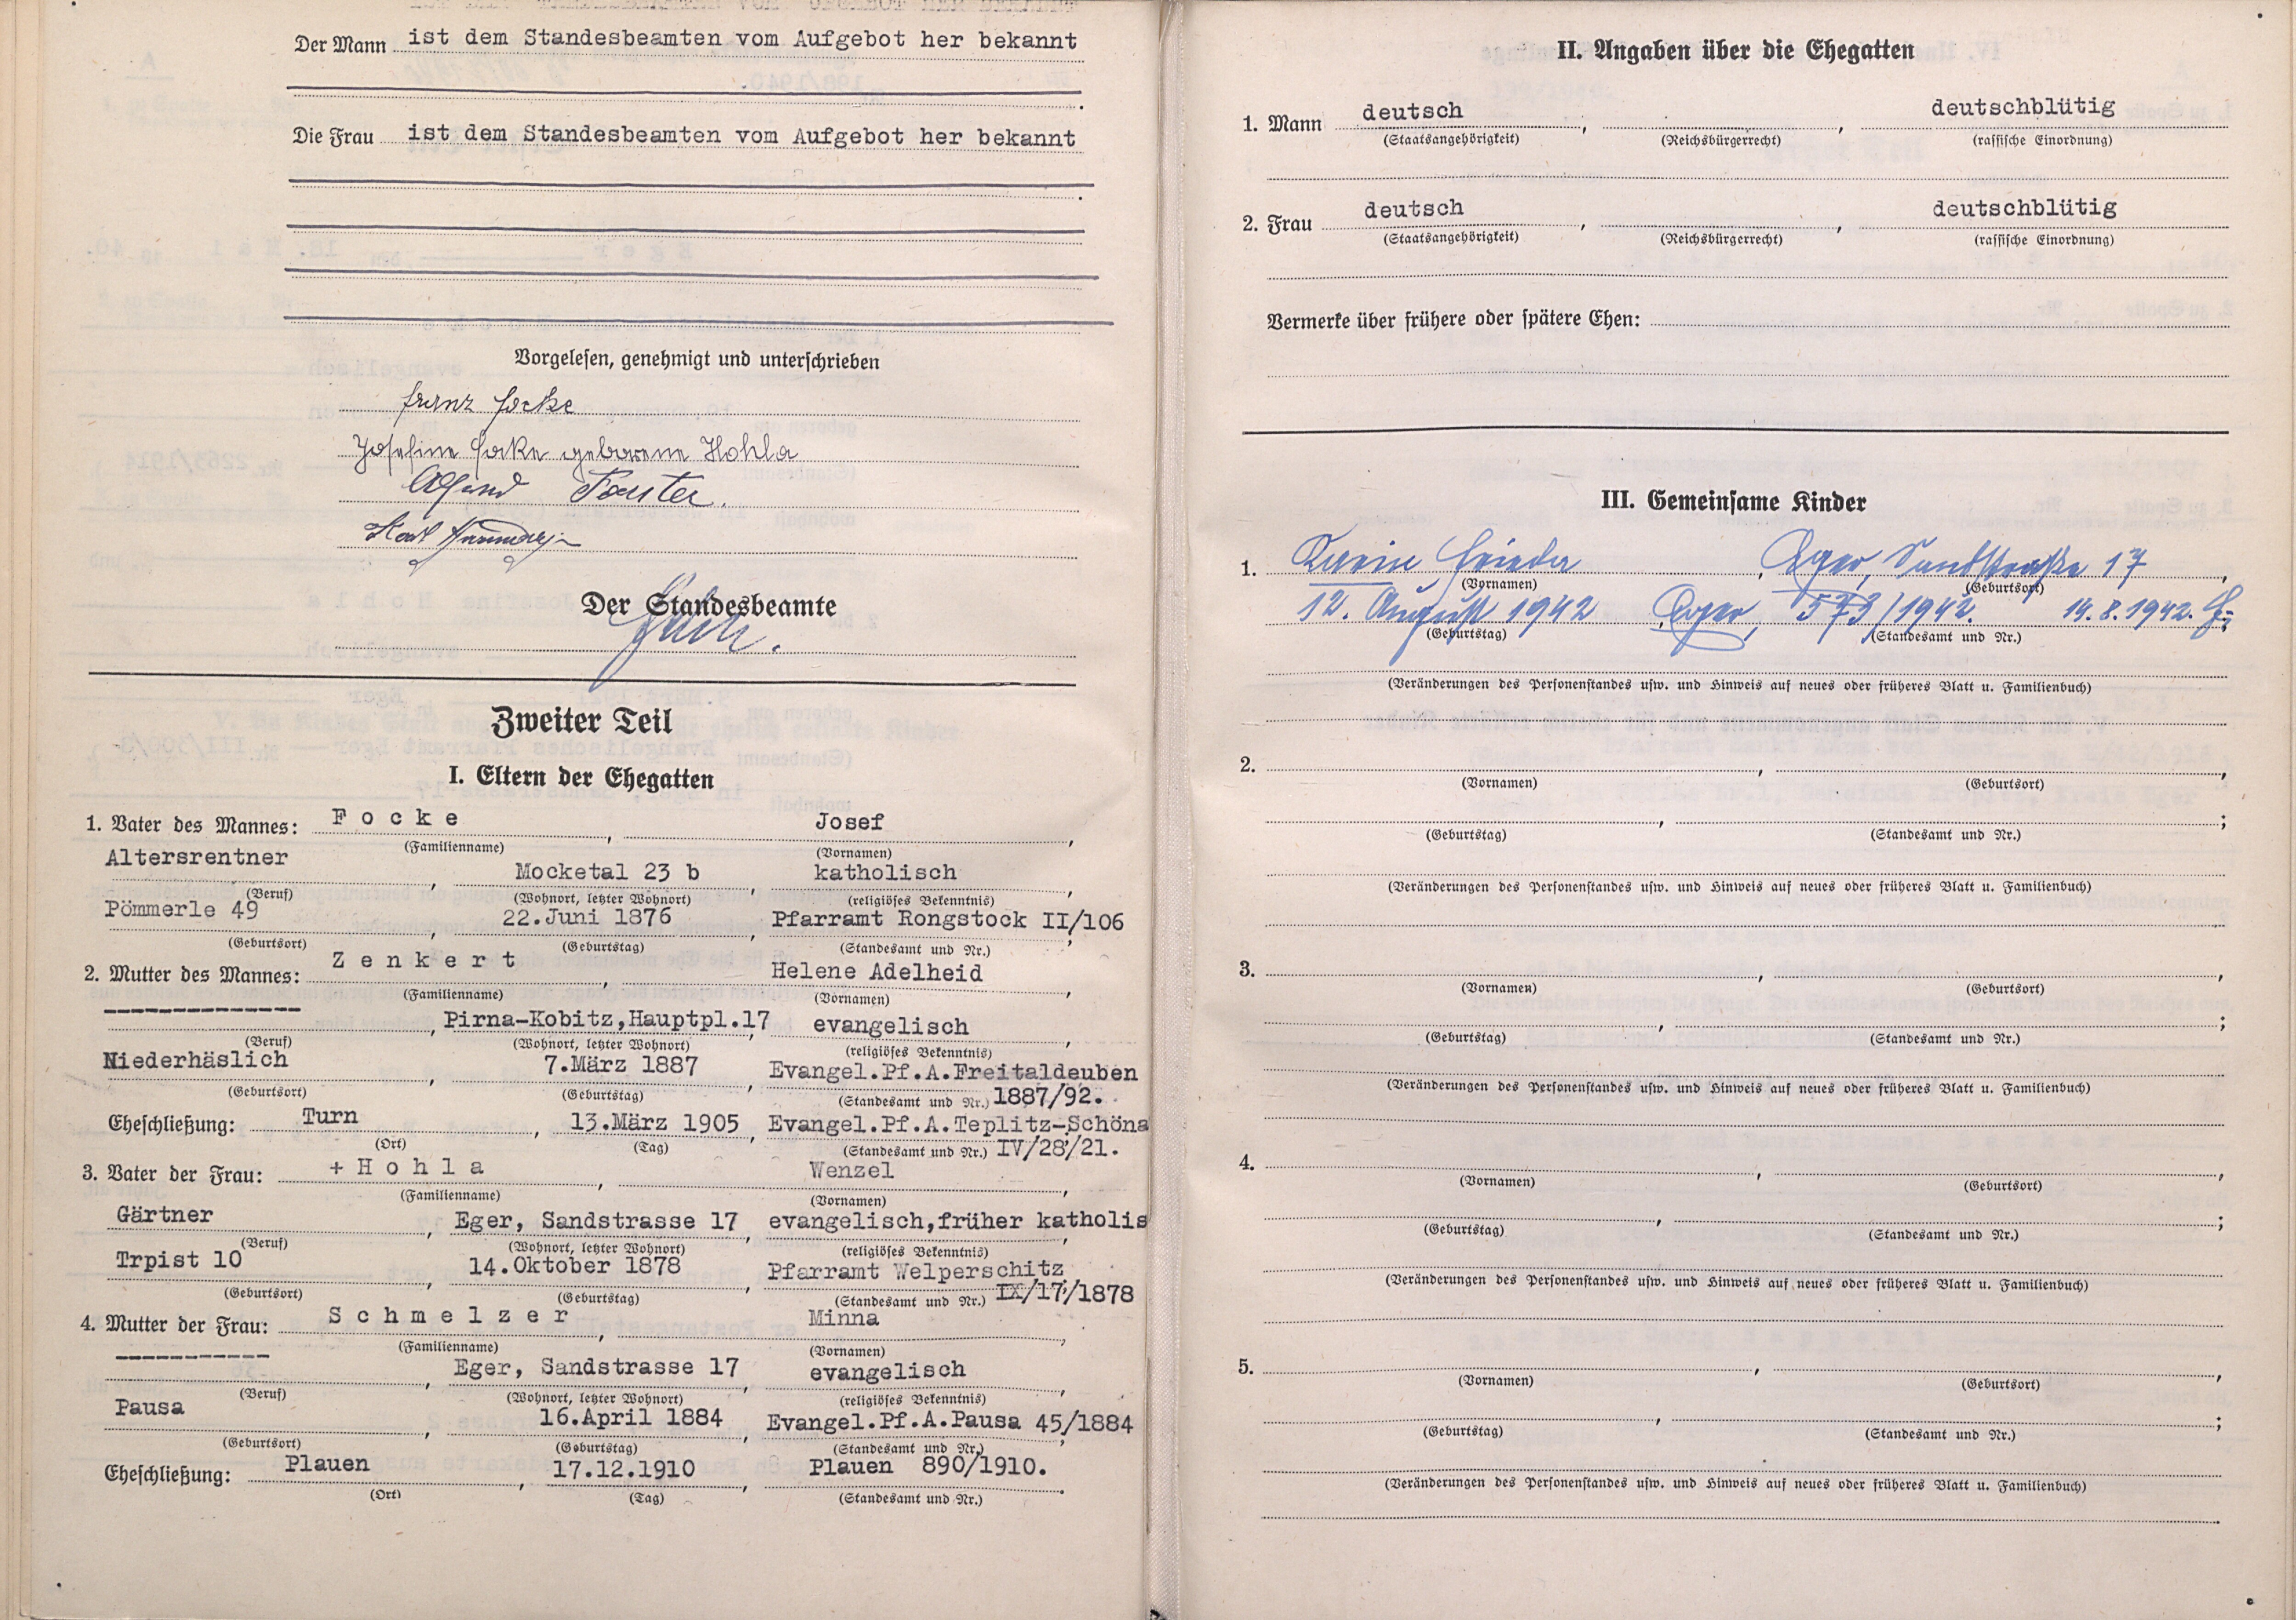 Der Mann ist dem Standesbeamten vom Aufgebot her bekannt
.
Die Frau ist dem Standesbeamten vom Aufgebot her bekannt
.
Vorgelesen, genehmigt und unterschrieben
Franz Focke
Josefine Focke geborene Hohla
Forster.
Karl
Der Standesbeamte
Zweiter Teil
I. Eltern der Ehegatten
1. Vater des Mannes: Focke, Josef,
(Familienname) (Vornamen)
Altersrentner, Mocketal 23 b, katholisch,
(Beruf) (Wohnort, letzter Wohnort) (religiöses Bekenntnis)
Pömmerle 49, 22.Juni 1876, Pfarramt Rongstock II/106;
(Geburtsort) (Geburtstag) (Standesamt und Nr.)
2. Mutter des Mannes: Zenkert, Helene Adelheid,
(Familienname) (Vornamen)
-----------, Pirna-Kobitz,Hauptpl.17, evangelisch,
(Beruf) (Wohnort, letzter Wohnort) (religiöses Bekenntnis)
Niederhäslich, 7.März 1887, Evangel.Pf.A.Freitaldeuben
(Geburtsort) (Geburtstag) (Standesamt und Nr.) 1887/92.
Eheschließung: Turn, 13.März 1905, Evangel.Pf.A.Teplitz-Schöna
(Ort) (Tag) (Standesamt und Nr.) IV/28/21.
3. Vater der Frau: + Hohla, Wenzel,
(Familienname) (Vornamen)
Gärtner, Eger, Sandstrasse 17, evangelisch,früher katholis
(Beruf) (Wohnort, letzter Wohnort) (religiöses Bekenntnis)
Trpist 10, 14.Oktober 1878, Pfarramt Welperschitz
(Geburtsort) (Geburtstag) (Standesamt und Nr.) IX/17/1878
4. Mutter der Frau: Schmelzer, Minna,
(Familienname) (Vornamen)
-----------, Eger, Sandstrasse 17, evangelisch,
(Beruf) (Wohnort, letzter Wohnort) (religiöses Bekenntnis)
Pausa, 16.April 1884, Evangel.Pf.A.Pausa 45/1884;
(Geburtsort) (Geburtstag) (Standesamt und Nr.)
Eheschließung: Plauen, 17.12.1910, Plauen 890/1910.
(Ort) (Tag) (Standesamt und Nr.)
II. Angaben über die Ehegatten
1. Mann deutsch, , deutschblütig
(Staatsangehörigkeit) (Reichsbürgerrecht) (rassische Einordnung)
2. Frau deutsch, , deutschblütig
(Staatsangehörigkeit) (Reichsbürgerrecht) (rassische Einordnung)
Vermerke über frühere oder spätere Ehen:
III. Gemeinsame Kinder
1. Karin Frieda, Eger, Sandstraße 17,
(Vornamen) (Geburtsort)
12. August 1942, Eger, 573/1942. 14.8.1942.
(Geburtstag) (Standesamt und Nr.)
(Veränderungen des Personenstandes usw. und Hinweis auf neues oder früheres Blatt u. Familienbuch)
2. , ,
(Vornamen) (Geburtsort)
, ;
(Geburtstag) (Standesamt und Nr.)
(Veränderungen des Personenstandes usw. und Hinweis auf neues oder früheres Blatt u. Familienbuch)
3. , ,
(Vornamen) (Geburtsort)
, ;
(Geburtstag) (Standesamt und Nr.)
(Veränderungen des Personenstandes usw. und Hinweis auf neues oder früheres Blatt u. Familienbuch)
4. , ,
(Vornamen) (Geburtsort)
, ;
(Geburtstag) (Standesamt und Nr.)
(Veränderungen des Personenstandes usw. und Hinweis auf neues oder früheres Blatt u. Familienbuch)
5. , ,
(Vornamen) (Geburtsort)
, ;
(Geburtstag) (Standesamt und Nr.)
(Veränderungen des Personenstandes usw. und Hinweis auf neues oder früheres Blatt u. Familienbuch)